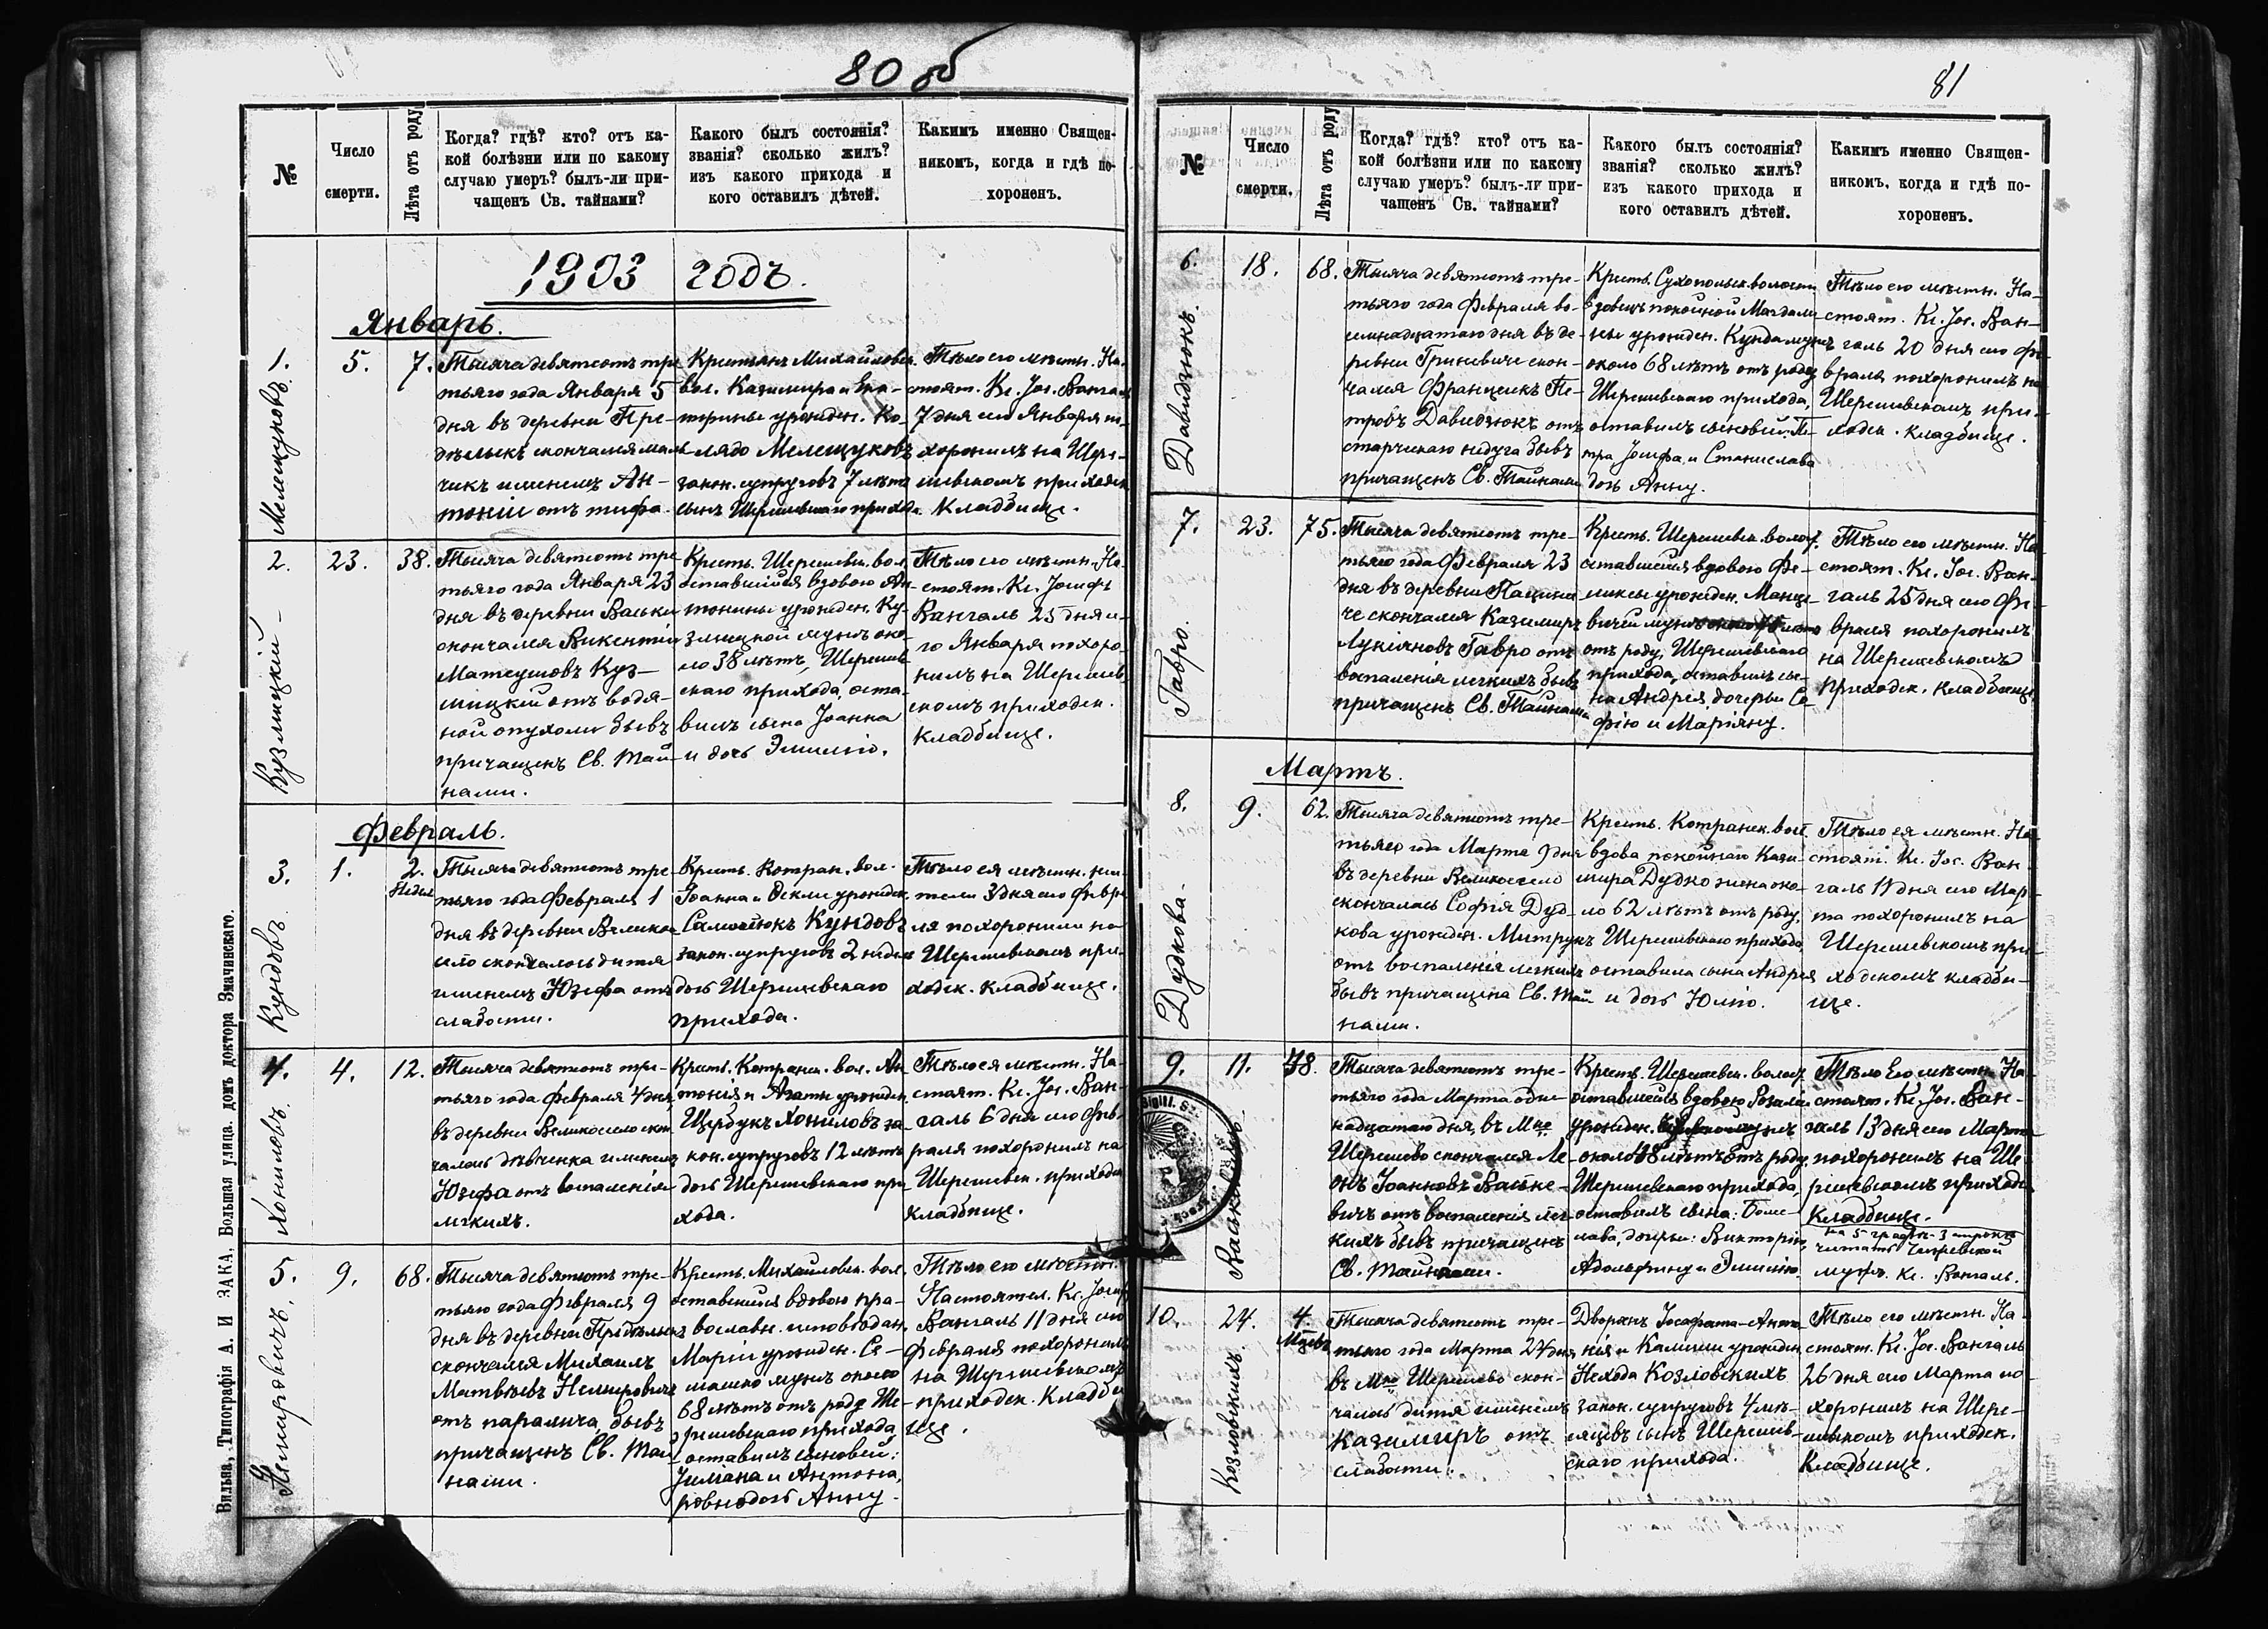 80 об
№
Число
смерти.
Лѣта отъ роду
Когда? гдѣ? кто? отъ ка-
кой болѣзни или по какому
случаю умеръ? былъ-ли при-
чащенъ Св. тайнами?
Какого былъ состоянія?
званія? сколько жилъ?
изъ какого прихода и
кого оставилъ дѣтей.
Какимъ именно Священ-
никомъ, когда и гдѣ по-
хороненъ.
1903 годъ.
Январь.
1.
Мелещуковъ.
5.
7.
Тысяча девятсотъ тре
тьяго года Января 5
дня въ деревни Пре-
дѣльскъ скончался маль
чикъ именемъ Ан-
тоній отъ тифа.
Крестьянъ Михайловск.
вол. Казимира и Ека-
терины урожден. Ко-
лядо Мелещуковъ
закон. супруговъ 7 лѣтъ
сынъ Шерешевскаго прихода.
Тѣло его мѣстн. На-
стоят. Кс. Іос. Вангаль
7 дня сего Января по-
хоронилъ на Шере-
шевскомъ приходск.
кладбище.
2.
Кузмицкій -
23.
38.
Тысяча девятсотъ тре
тьяго года Января 23
дня въ деревни Васьки
скончался Викентій
Матеушовъ Куз-
мицкій отъ водя-
ной опухоли бывъ
причащенъ Св. Тай-
нами.
Крест. Шерешевск. вол.
оставшійся вдовою Ан
тонины урожден. Ку-
змицкой мужъ око-
ло 38 лѣтъ, Шерешев
скаго прихода, оста-
вилъ сына Іоанна
и дочь Эмилію.
Тѣло его мѣстн. На-
стоят. Кс. Іосифъ
Вангаль 25 дня се-
го Января похоро-
нилъ на Шерешев
скомъ приходск.
кладбище.
Февраль.
3.
Кундовъ.
1.
2.
Недел
Тысяча девятсотъ тре
тьяго года Февраля 1
дня въ деревни Велико
село скончалось дитя
именемъ Юзефа отъ
слабости.
Крест. Котран. вол.
Іоанна и Феклы урожден.
Самосюкъ Кундовъ
закон. супруговъ 2 недел
дочь Шерешевскаго
прихода.
Тѣло ея мѣстн. жи-
тели 3 дня сего Февра
ля похоронили на
Шерешевскомъ при-
ходск. кладбище.
4.
Хониловъ.
4.
12.
Тысяча девятсотъ тре-
тьяго года Февраля 4 дня,
въ деревни Великосело скон
чалась дѣвченка именемъ
Юзефа отъ воспаленія
легкихъ.
Крест. Котранск. вол. Ан
тонія и Агаты урожден.
Щербукъ Хониловъ за-
кон. супруговъ 12 лѣтъ
дочь Шерешевскаго при
хода.
Тѣло ея мѣстн. На-
стоят. Кс. Іос. Ван-
галь 6 дня сего Фев-
раля похоронилъ на
Шерешевск. приходск
кладбище.
5.
Немировичъ.
9.
68.
Тысяча девятсотъ тре-
тьяго года Февраля 9
дня въ деревни Предѣльскъ
скончался Михаилъ
Матвѣевъ Немировичъ
отъ паралича, бывъ
причащенъ Св. Тай
нами.
Крест. Михайловск. вол.
оставшійся вдовою пра-
вославн. исповѣдан.
Маріи урожден. Се-
машко мужъ около
68 лѣтъ отъ роду Ше-
решевскаго прихода
оставилъ сыновей:
Юліана и Антона,
ровно дочь Анну.
Тѣло его мѣстн.
Настоятел. Кс. Іосиф
Вангаль 11 дня сего
Февраля похоронилъ
на Шерешевскомъ
приходск. кладби
ще.
Вильна, Типографія А. И ЗАКА, Большая улица, домъ доктора Значинскаго.
81
№
Число
смерти.
Лѣта отъ роду
Когда? гдѣ? кто? отъ ка-
кой болѣзни или по какому
случаю умеръ? былъ-ли при-
чащенъ Св. тайнами?
Какого былъ состоянія?
званія? сколько жилъ?
изъ какого прихода и
кого оставилъ дѣтей.
Какимъ именно Священ-
никомъ, когда и гдѣ по-
хороненъ.
6.
Давидзюкъ.
18.
68.
Тысяча девятсотъ тре-
тьяго года Февраля во-
семнадцатаго дня въ де-
ревни Гриневичи скон-
чался Францискъ Пе-
тровъ Давидзюкъ отъ
старческаго недуга бывъ
причащенъ Св. Тайнами
Крест. Сухопольск. волости
вдовецъ покойной Магдале
ны урожден. Кунда мужъ
около 68 лѣтъ отъ роду
Шерешевскаго прихода,
оставилъ сыновей: Пе-
тра Іосифа, и Станислава
дочь Анну.
Тѣло его мѣстн. На-
стоят. Кс. Іос. Ван-
галь 20 дня сего Фе
враля похоронилъ на
Шерешевскомъ при-
ходск. кладбище.
7.
Гавро.
23.
75.
Тысяча девятсотъ тре-
тьяго года Февраля 23
дня въ деревни Пацини
че скончался Казимиръ
Лукіяновъ Гавро отъ
воспаленія легкихъ бывъ
причащенъ Св. Тайнами
Крест. Шерешевск. волост.
оставшійся вдовою Фе-
ликсы урожден. Манце-
вичей мужъ около 75 лѣтъ
отъ роду, Шерешевскаго
прихода, оставилъ сы-
на Андрея, дочерьи Со
фію и Маріяну.
Тѣло его мѣстн. На
стоят. Кс. Іос. Ван-
галь 25 дня сего Фе-
враля похоронилъ
на Шерешевскомъ
приходск. кладбище.
Мартъ.
8.
Дудкова.
9.
62.
Тысяча девятсотъ тре-
тьяго года Марта 9 дня
въ деревни Великосело
скончалась Софія Дуд-
кова урожден. Митрукъ
отъ воспаленія легкихъ
бывъ причащена Св. Тай
нами.
Крест. Котранск. вол.
вдова покойнаго Кази-
мира Дудко жена око-
ло 62 лѣтъ отъ роду,
Шерешевскаго прихода,
оставила сына Андрея
и дочь Юлію.
Тѣло ея мѣстн. На-
стоят. Кс. Іос. Ван-
галь 11 дня сего Мар-
та похоронилъ на
Шерешевскомъ при-
ходскомъ кладби-
ще.
9.
11.
Тысяча девятсотъ тре-
тьяго года Марта один
надцатаго дня, въ Мкѣ
Шерешево скончался Ле-
онъ Іоанновъ Ваське-
вичъ отъ воспаленія лег-
кихъ бывъ причащенъ
Св. Тайнами.
Крест. Шерешевск. волост.
оставшійся вдовою Розаліи
урожден. мужъ
около лѣтъ отъ роду,
Шерешевскаго прихода,
оставилъ сына: Боле-
слава, дочерьи: Викторію,
Адольфину и Эмилію.
Тѣло Его мѣстн. На-
стоят. Кс. Іос. Ван-
галь 13 дня сего Марта
похоронилъ на Ше-
решевскомъ приходск
кладбище.
на 5 графѣ 3 строкѣ
читать
мужъ. Кс. Вангаль.
10.
Козловскихъ.
24.
4.
Мѣсяцъ
Тысяча девятсотъ тре-
тьяго года Марта 24 дня
въ Мкѣ Шерешево скон-
чалось дитя именемъ
Казимиръ отъ
слабости.
Дворянъ Іосафата-Анто-
нія и Камилли урожден.
Нехода Козловскихъ
закон. супруговъ 4 мѣ-
сяцевъ сынъ Шерешев-
скаго прихода.
Тѣло его мѣстн. На-
стоят. Кс. Іос. Вангаль
26 дня сего Марта по-
хоронилъ на Шере-
шевскомъ приходск.
кладбище.